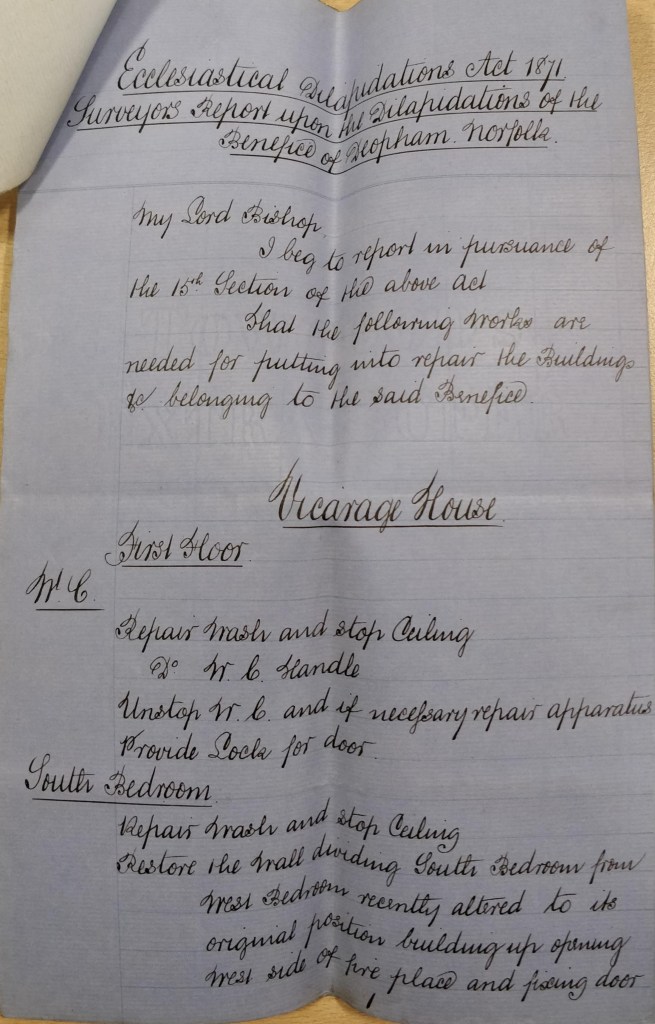 Ecclesiastical Dilapidations Act 1871
Surveyors Report upon the Dilapidations of the
Benefice of Deopham. Norfolk.
My Lord Bishop,
I beg to report in pursuance of
the 15th Section of the above Act
That the following works are
needed for putting into repair the Buildings
&c belonging to the said Benefice.
Vicarage House.
First Floor.
W. C.
Repair Wash and stop Ceiling
Do W. C. Handle
Unstop W. C. and if necessary repair apparatus
Provide Lock for door.
South Bedroom.
Repair Wash and stop Ceiling
Restore the Wall dividing South Bedroom from
West Bedroom recently altered to its
original position building up opening
West side of fire place and fixing door